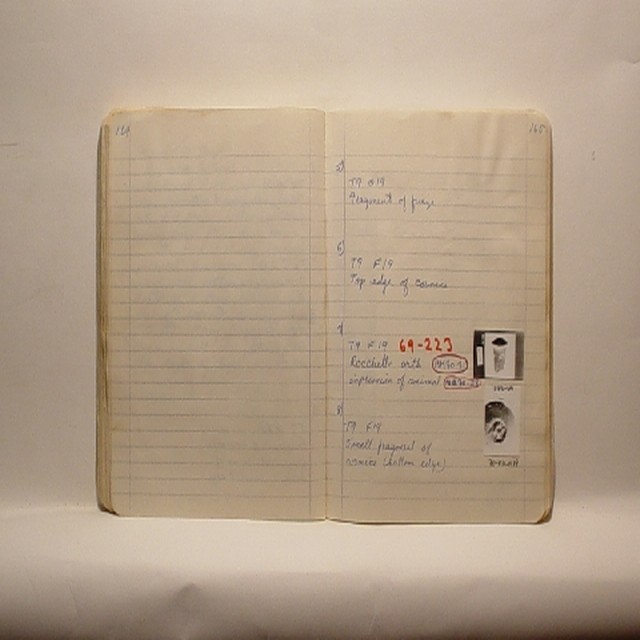 164
165
5)
T9 G19
Fragment of frieze
6)
T9 F19
Top edge of cornice
7)
T9 F19 69-223
Rocchetto with
impression of animal
8)
T9 F19
Small fragment of
cornice (bottom edge)